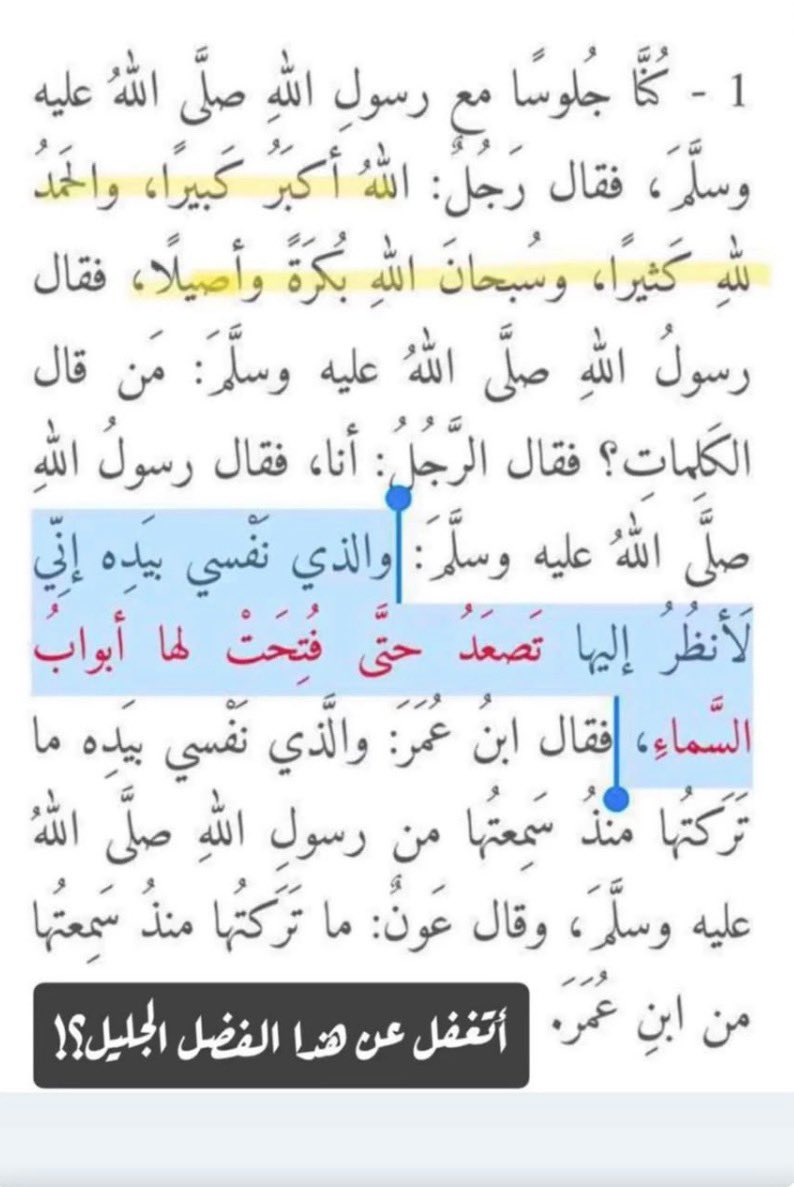 1 - كُنَّا جُلوسًا مع رسولِ اللهِ صلَّى اللهُ عليه
وسلَّمَ، فقال رَجُلٌ: اللهُ أكبَرُ كَبيرًا، والحَمدُ
للهِ كَثيرًا، وسُبحانَ اللهِ بُكرَةً وأصيلًا، فقال
رسولُ اللهِ صلَّى اللهُ عليه وسلَّمَ: مَن قال
الكَلِماتِ؟ فقال الرَّجُلُ: أنا، فقال رسولُ اللهِ
صلَّى اللهُ عليه وسلَّمَ: والذي نَفْسي بيَدِه إنِّي
لَأنظُرُ إليها تَصعَدُ حتَّى فُتِحَتْ لها أبوابُ
السَّماءِ، فقال ابنُ عُمَرَ: والَّذي نَفْسي بيَدِه ما
تَرَكتُها منذُ سَمِعتُها من رسولِ اللهِ صلَّى اللهُ
عليه وسلَّمَ، وقال عَونٌ: ما تَرَكتُها منذُ سَمِعتُها
من ابنِ عُمَرَ.
أتغفل عن هذا الفضل الجليل؟!